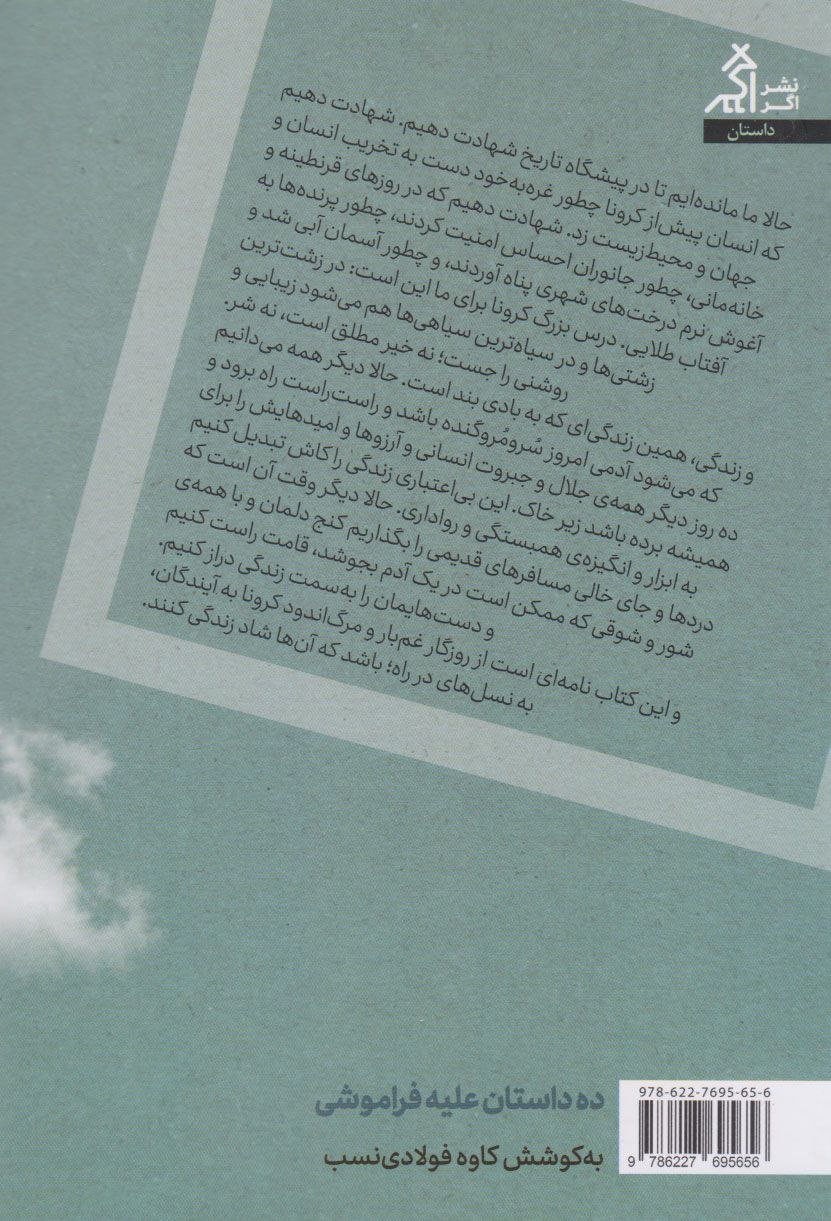 نشر
اگر
داستان
حالا ما مانده‌ایم تا در پیشگاه تاریخ شهادت دهیم. شهادت دهیم
که انسان پیش‌از کرونا چطور غره‌به‌خود دست به تخریب انسان و
جهان و محیط‌زیست زد. شهادت دهیم که در روزهای قرنطینه و
خانه‌مانی، چطور جانوران احساس امنیت کردند، چطور پرنده‌ها به
آغوش نرم درخت‌های شهری پناه آوردند، و چطور آسمان آبی شد و
آفتاب طلایی. درس بزرگ کرونا برای ما این است: در زشت‌ترین
زشتی‌ها و در سیاه‌ترین سیاهی‌ها هم می‌شود زیبایی و
روشنی را جست؛ نه خیر مطلق است، نه شر.
و زندگی، همین زندگی‌ای که به بادی بند است. حالا دیگر همه می‌دانیم
که می‌شود آدمی امروز سُرومُروگنده باشد و راست‌راست راه برود و
ده روز دیگر همه‌ی جلال و جبروت انسانی و آرزوها و امیدهایش را برای
همیشه برده باشد زیر خاک. این بی‌اعتباری زندگی را کاش تبدیل کنیم
به ابزار و انگیزه‌ی همبستگی و رواداری. حالا دیگر وقت آن است که
دردها و جای خالی مسافرهای قدیمی را بگذاریم کنج دلمان و با همه‌ی
شور و شوقی که ممکن است در یک آدم بجوشد، قامت راست کنیم
و دست‌هایمان را به‌سمت زندگی دراز کنیم.
و این کتاب نامه‌ای است از روزگار غم‌بار و مرگ‌اندود کرونا به آیندگان،
به نسل‌های در راه؛ باشد که آن‌ها شاد زندگی کنند.
ده داستان علیه فراموشی
به‌کوشش کاوه فولادی‌نسب
978-622-7695-65-6
9 786227 695656